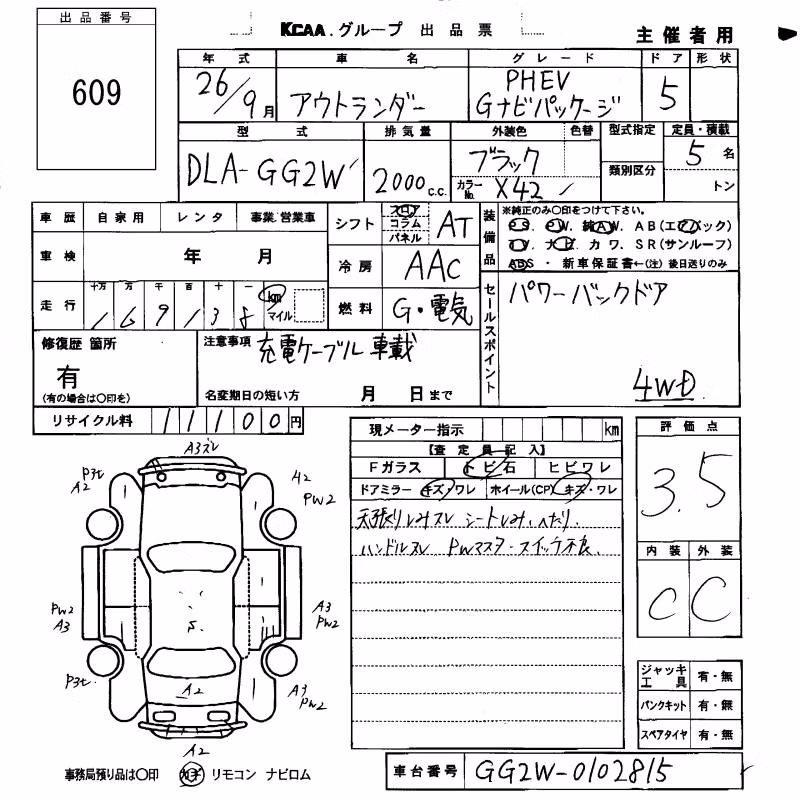 出品番号
609
KCAA.グループ 出品票
主催者用
年式 車名 グレード ドア 形状
26/9月 アウトランダー PHEV Gナビパッケージ 5
型式 排気量 外装色 色替 型式指定 定員・積載
DLA-GG2W 2000c.c. ブラック 5名
カラーNo. X42 類別区分 トン
車歴 自家用 レンタ 事業/営業車
シフト フロア コラム パネル AT
装備品 ※純正のみ〇印をつけて下さい。
P S. P W. 純A W. A B(エアバック)
T V. ナ ビ. カ ワ. S R(サンルーフ)
ABS ・ 新車保証書←(注) 後日送りのみ
車検 年 月
冷房 AAC
走行 十万 万 千 百 十 一
169138 km マイル
燃料 G・電気
セールスポイント パワーバックドア
4WD
修復歴 箇所
有
(有の場合は〇印を)
注意事項 充電ケーブル車載
名変期日の短い方 月 日まで
リサイクル料 11100円
現メーター指示 km
【査定員記入】
Fガラス トビ石 ヒビワレ
ドアミラー キズ・ワレ ホイール(CP) キズ・ワレ
天張りしみスレ シートしみ、へたり、
ハンドルスレ PWマスタースイッチ不良、
評価点
3.5
内装 外装
C C
A3ズレ
P3t
A2
A2
PW2
PW2
A3
A3
PW2
S.
P3t.
A2
A3
PW2
A2
ジャッキ工具 有・無
パンクキット 有・無
スペアタイヤ 有・無
事務局預り品は〇印 リモコン ナビロム
車台番号 GG2W-0102815